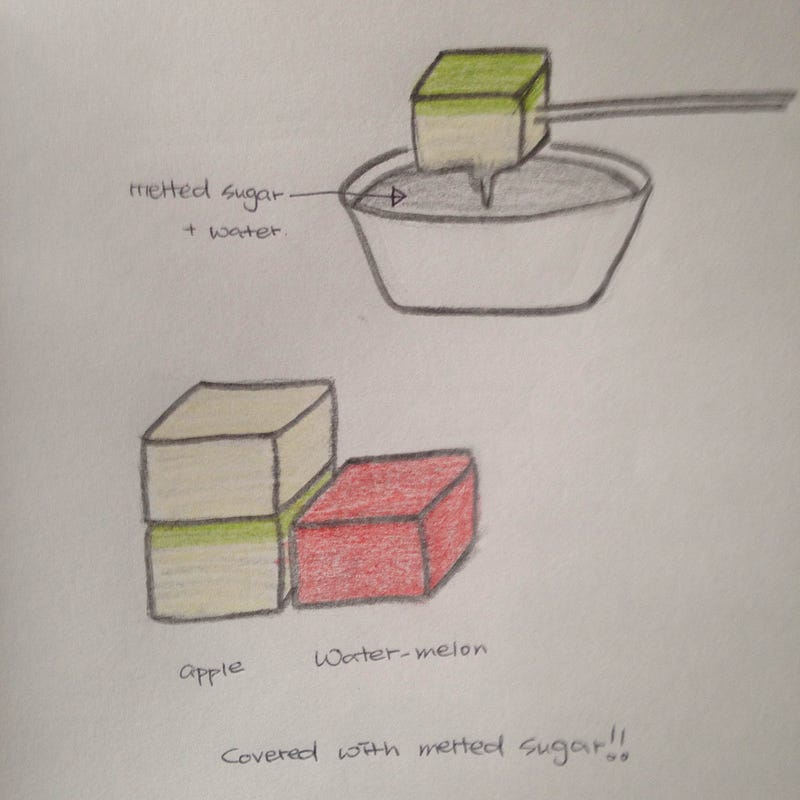 melted sugar
+ water.
apple
Water-melon
Covered with melted sugar!!